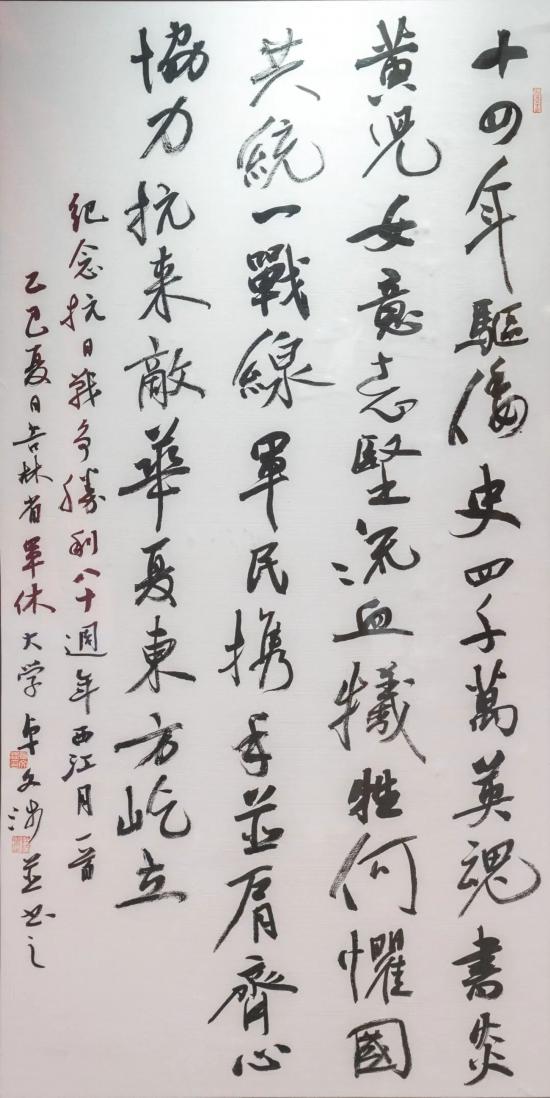 十四年驅倭史四千萬英魂書炎
黃児女意志堅流血犧牲何懼國
共統一戰線軍民携手並肩齊心
協力抗来敵華夏東方屹立
紀念抗日戰争勝利八十週年西江月一首
乙巳夏日吉林省軍休大学卓文並书之